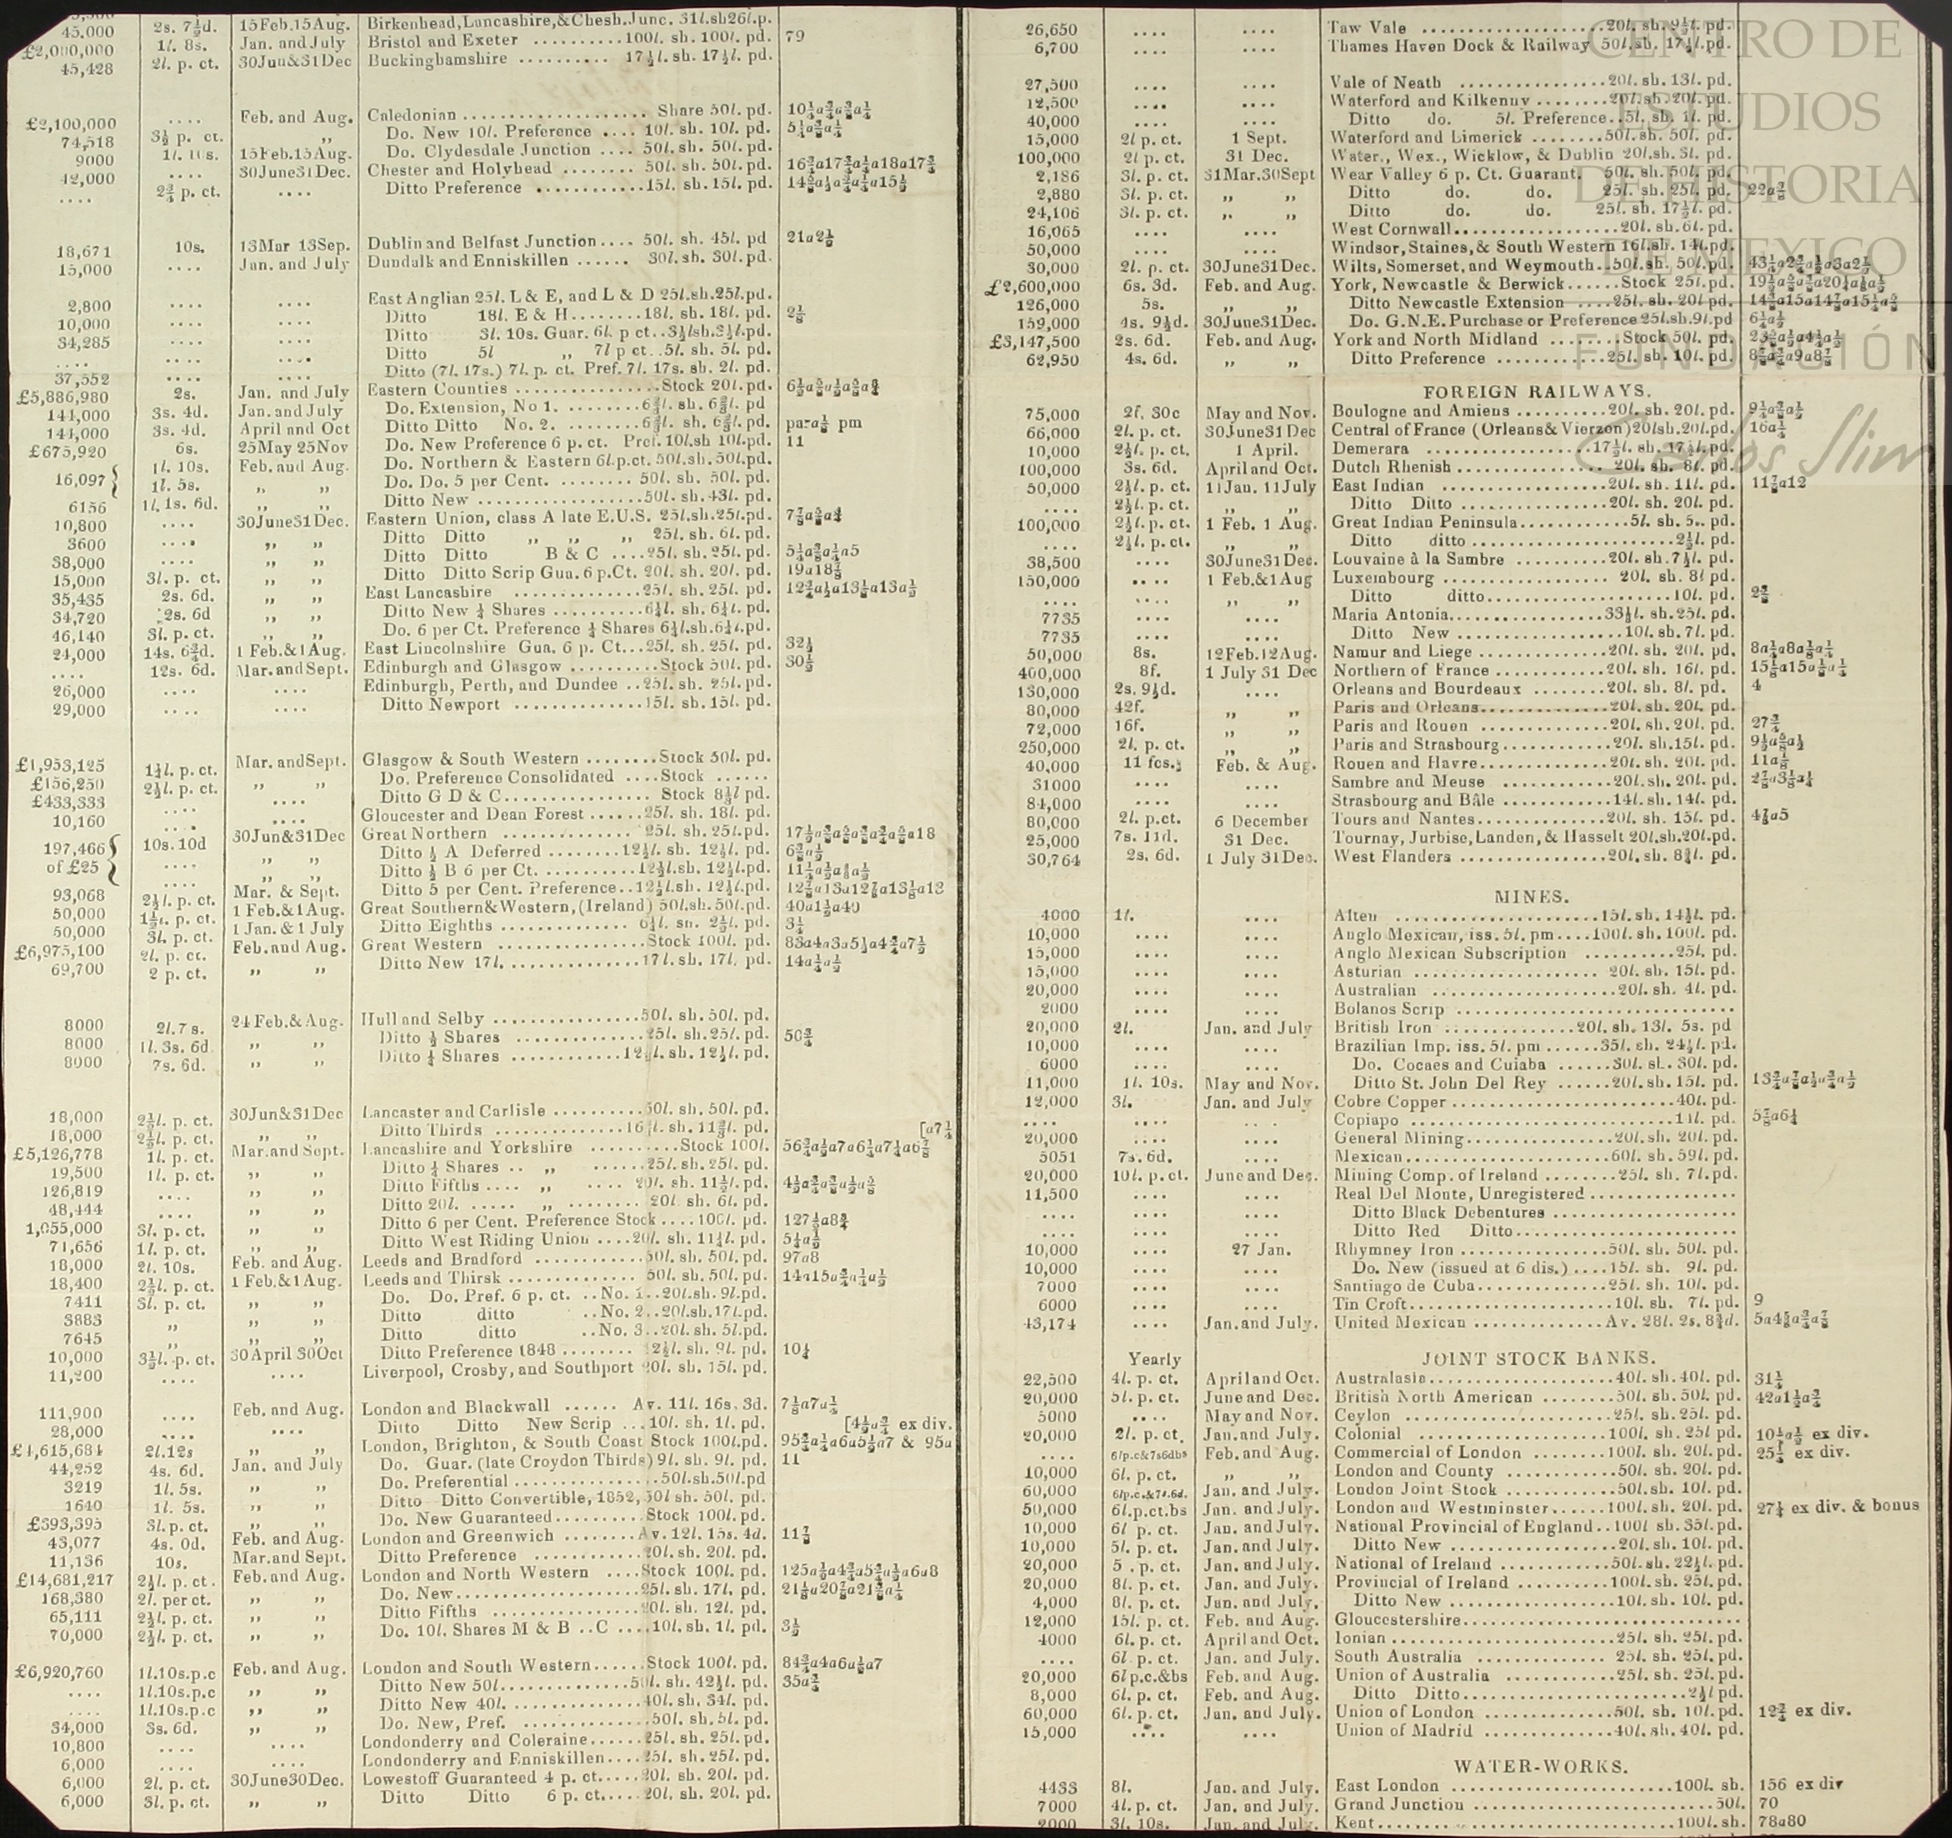 45,000 2s. 7½d. 15Feb.15Aug. Birkenhead, Lancashire, & Chesh. Junc. 31l.sh26l.p.
£2,000,000 1l. 8s. Jan. and July Bristol and Exeter .......... 100l. sh. 100l. pd. 79
45,428 2l. p. ct. 30Jun&31Dec Buckinghamshire .......... 17½l. sh. 17½l. pd.
£2,100,000 .... Feb. and Aug. Caledonian .................... Share 50l. pd.
74,518 3½ p. ct. „ Do. New 10l. Preference .... 10l. sh. 10l. pd.
9000 1l. 10s. 15Feb.15Aug. Do. Clydesdale Junction .... 50l. sh. 50l. pd.
42,000 .... 30June31Dec. Chester and Holyhead ........ 50l. sh. 50l. pd.
.... 2¾ p. ct. .... Ditto Preference ............ 15l. sh. 15l. pd.
18,671 10s. 13Mar 13Sep. Dublin and Belfast Junction.... 50l. sh. 45l. pd
15,000 .... Jan. and July Dundalk and Enniskillen ...... 30l. sh. 30l. pd.
2,800 .... .... East Anglian 25l. L & E, and L & D 25l.sh.25l.pd.
10,000 .... .... Ditto 18l. E & H........18l. sh. 18l. pd. 2⅛
34,285 .... .... Ditto 3l. 10s. Guar. 6l. p ct..
.... .... .... Ditto 5l „ 7l p ct..5l. sh. 5l. pd.
37,552 .... .... Ditto (7l. 17s.) 7l. p. ct. Pref. 7l. 17s. sh. 2l. pd.
£5,886,980 2s. Jan. and July Eastern Counties ................Stock 20l. pd.
144,000 3s. 4d. Jan. and July Do. Extension, No 1. .........6⅔l. sh. 6⅔l. pd
144,000 3s. 4d. April and Oct Ditto Ditto No. 2. ........6⅔l. sh. 6⅔l. pd. para⅛ pm
£675,920 6s. 25May 25Nov Do. New Preference 6 p. ct. Pref. 10l.sh 10l.pd. 11
16,097 { 1l. 10s. Feb. and Aug. Do. Northern & Eastern 6l.p.ct. 50l.sh.50l.pd.
1l. 5s. „ „ Do. Do. 5 per Cent. ........ 50l. sh. 50l. pd.
6156 1l. 1s. 6d. „ „ Ditto New ..................50l. sh. 43l. pd.
10,800 .... 30June31Dec. Eastern Union, class A late E.U.S. 25l.sh.25l.pd.
3600 .... „ „ Ditto Ditto „ „ „ 25l. sh. 6l. pd.
38,000 .... „ „ Ditto Ditto B & C ....25l. sh. 25l. pd.
15,000 3l. p. ct. „ „ Ditto Ditto Scrip Gua. 6 p.Ct. 20l. sh. 20l. pd. 19a18⅞
35,435 2s. 6d. „ „ East Lancashire ..............25l. sh. 25l. pd.
34,720 2s. 6d „ „ Ditto New ¼ Shares ..........6¼l. sh. 6¼l. pd.
46,140 3l. p. ct. „ „ Do. 6 per Ct. Preference ¼ Shares 6¼l.sh.6¼l.pd.
24,000 14s. 6¾d. 1 Feb.&1Aug. East Lincolnshire Gua. 6 p. Ct...25l. sh. 25l. pd.
.... 12s. 6d. Mar. and Sept. Edinburgh and Glasgow ..........Stock 50l. pd. 30½
26,000 .... .... Edinburgh, Perth, and Dundee ..25l. sh. 25l. pd.
29,000 .... .... Ditto Newport ..............15l. sh. 15l. pd.
£1,953,125 1¼l. p. ct. Mar. and Sept. Glasgow & South Western ........Stock 50l. pd.
£156,250 2½l. p. ct. „ „ Do. Preference Consolidated ....Stock ......
£433,333 .... .... Ditto G D & C............... Stock 8⅓l pd.
10,160 .... .... Gloucester and Dean Forest ......25l. sh. 18l. pd.
197,466 { 10s. 10d 30Jun&31Dec Great Northern ..............25l. sh. 25l. pd.
of £25 .... „ „ Ditto ½ A Deferred ........12½l. sh. 12½l. pd.
.... „ „ Ditto ½ B 6 per Ct. ..........12½l.sh. 12½l.pd.
93,068 2½l. p. ct. Mar. & Sept. Ditto 5 per Cent. Preference..12½l.sh. 12½l.pd.
50,000 1½l. p. ct. 1 Feb.&1Aug. Great Southern&Western, (Ireland) 50l.sh.50l.pd. 40a1½a40
50,000 3l. p. ct. 1 Jan. & 1 July Ditto Eighths .............. 6¼l. sh. 2½l. pd. 3¼
£6,975,100 2l. p. ct. Feb. and Aug. Great Western ................Stock 100l. pd.
69,700 2 p. ct. „ „ Ditto New 17l. ..............17l. sh. 17l. pd. 14a¼a½
8000 2l. 7s. 24 Feb.& Aug. Hull and Selby ................50l. sh. 50l. pd.
8000 1l. 3s. 6d „ „ Ditto ½ Shares ..............25l. sh. 25l. pd. 50¾
8000 7s. 6d. „ „ Ditto ¼ Shares ..............12½l. sh. 12½l. pd.
18,000 2½l. p. ct. 30Jun&31Dec Lancaster and Carlisle ..........50l. sh. 50l. pd.
18,000 2½l. p. ct. „ „ Ditto Thirds ................16⅔l. sh. 11⅔l. pd. [a7¼
£5,126,778 1l. p. ct. Mar. and Sept. Lancashire and Yorkshire ..........Stock 100l.
19,500 1l. p. ct. „ „ Ditto ¼ Shares .. „ ......25l. sh. 25l. pd.
126,819 .... „ „ Ditto Fifths .... „ .... 20l. sh. 11½l. pd.
48,444 .... „ „ Ditto 20l. ..... „ ........ 20l. sh. 6l. pd.
1,055,000 3l. p. ct. „ „ Ditto 6 per Cent. Preference Stock ....100l. pd.
71,656 1l. p. ct. „ „ Ditto West Riding Union ....20l. sh. 11¼l. pd.
18,000 2l. 10s. Feb. and Aug. Leeds and Bradford ............50l. sh. 50l. pd. 97a8
18,400 2½l. p. ct. 1 Feb.&1Aug. Leeds and Thirsk ..............50l. sh. 50l. pd.
7411 3l. p. ct. „ „ Do. Do. Pref. 6 p. ct. ..No. 1..20l.sh.9l.pd.
3883 „ „ „ Ditto ditto ..No. 2..20l.sh.17l.pd.
7645 „ „ „ Ditto ditto ..No. 3..20l. sh. 5l.pd.
10,000 3½l. p. ct. 30April 30Oct Ditto Preference 1848 ........ 12½l. sh. 9l. pd. 10¼
11,200 .... .... Liverpool, Crosby, and Southport 20l. sh. 15l. pd.
111,900 .... Feb. and Aug. London and Blackwall ...... Av. 11l. 16s. 3d. 7⅛a7a¼
28,000 .... .... Ditto Ditto New Scrip ...10l. sh. 1l. pd. [4½a¾ ex div.
£4,615,684 2l.12s „ „ London, Brighton, & South Coast Stock 100l.pd.
44,252 4s. 6d. Jan. and July Do. Guar. (late Croydon Thirds) 9l. sh. 9l. pd. 11
3219 1l. 5s. „ „ Do. Preferential ................50l.sh.50l.pd
1640 1l. 5s. „ „ Ditto Ditto Convertible, 1852, 50l sh. 50l. pd.
£393,395 3l. p. ct. „ „ Do. New Guaranteed..........Stock 100l. pd.
43,077 4s. 0d. Feb. and Aug. London and Greenwich ........Av. 12l. 15s. 4d. 11⅞
11,136 10s. Mar. and Sept. Ditto Preference ............20l. sh. 20l. pd.
£14,681,217 2½l. p. ct. Feb. and Aug. London and North Western ....Stock 100l. pd.
168,380 2l. per ct. „ „ Do. New....................25l. sh. 17l. pd.
65,111 2½l. p. ct. „ „ Ditto Fifths ................20l. sh. 12l. pd.
70,000 2½l. p. ct. „ „ Do. 10l. Shares M & B ..C ....10l. sh. 1l. pd. 3½
£6,920,760 1l.10s.p.c Feb. and Aug. London and South Western......Stock 100l. pd.
.... 1l.10s.p.c „ „ Ditto New 50l..............50l. sh. 42½l. pd. 35a¾
.... 1l.10s.p.c „ „ Ditto New 40l. ..............40l. sh. 34l. pd.
34,000 3s. 6d. „ „ Do. New, Pref. ..............50l. sh. 5l. pd.
10,800 .... .... Londonderry and Coleraine......25l. sh. 25l. pd.
6,000 .... .... Londonderry and Enniskillen....25l. sh. 25l. pd.
6,000 2l. p. ct. 30June30Dec. Lowestoff Guaranteed 4 p. ct.....20l. sh. 20l. pd.
6,000 3l. p. ct. „ „ Ditto Ditto 6 p. ct....20l. sh. 20l. pd.
26,650 .... .... Taw Vale ....................20l. sh. 9½l. pd.
6,700 .... .... Thames Haven Dock & Railway 50l.sh. 17¼l.pd.
27,500 .... .... Vale of Neath ................20l. sh. 13l. pd.
12,500 .... .... Waterford and Kilkenny ........20l. sh. 20l. pd.
40,000 .... .... Ditto do. 5l. Preference..5l. sh. 1l. pd.
15,000 2l p. ct. 1 Sept. Waterford and Limerick ........50l. sh. 50l. pd.
100,000 2l p. ct. 31 Dec. Water., Wex., Wicklow, & Dublin 20l.sh. 3l. pd.
2,186 3l. p. ct. 31Mar.30Sept Wear Valley 6 p. Ct. Guarant. 50l. sh. 50l. pd.
2,880 3l. p. ct. „ „ Ditto do. do. 25l. sh. 25l. pd.
24,106 3l. p. ct. „ „ Ditto do. do. 25l. sh. 17½l. pd.
16,065 .... .... West Cornwall..................20l. sh. 6l. pd.
50,000 .... .... Windsor, Staines, & South Western 16l.sh. 14l.pd.
30,000 2l. p. ct. 30June31Dec. Wilts, Somerset, and Weymouth..50l. sh. 50l. pd.
£2,600,000 6s. 3d. Feb. and Aug. York, Newcastle & Berwick......Stock 25l. pd.
126,000 5s. „ „ Ditto Newcastle Extension ....25l. sh. 20l pd.
159,000 4s. 9½d. 30June31Dec. Do. G.N.E. Purchase or Preference 25l.sh.9l.pd 6¼a½
£3,147,500 2s. 6d. Feb. and Aug. York and North Midland ........Stock 50l. pd.
62,950 4s. 6d. „ „ Ditto Preference ............25l. sh. 10l. pd.
FOREIGN RAILWAYS.
75,000 2f. 30c May and Nov. Boulogne and Amiens ..........20l. sh. 20l. pd.
66,000 2l. p. ct. 30June31Dec Central of France (Orleans & Vierzon) 20lsh.20l.pd. 16a¼
10,000 2½l. p. ct. 1 April. Demerara ..................17½l. sh. 17½l. pd.
100,000 3s. 6d. April and Oct. Dutch Rhenish ................20l. sh. 8l. pd.
50,000 2½l. p. ct. 11Jan. 11July East Indian ..................20l. sh. 11l. pd. 11⅞a12
.... 2½l. p. ct. „ „ Ditto Ditto ................20l. sh. 20l. pd.
100,000 2½l. p. ct. 1 Feb. 1 Aug. Great Indian Peninsula............5l. sh. pd.
.... 2½l. p. ct. „ „ Ditto ditto ................2½l. pd.
38,500 .... 30June31Dec. Louvaine à la Sambre ..........20l. sh. 7½l. pd.
150,000 .... 1 Feb.&1Aug Luxembourg .................. 20l. sh. 8l pd.
.... .... „ „ Ditto ditto....................10l. pd.
7735 .... .... Maria Antonia................33⅓l. sh. 25l. pd.
7735 .... .... Ditto New ..................10l. sh. 7l. pd.
50,000 8s. 12Feb.12Aug. Namur and Liege ..............20l. sh. 20l. pd.
400,000 8f. 1 July 31 Dec Northern of France ............20l. sh. 16l. pd.
130,000 2s. 9½d. .... Orleans and Bourdeaux ........20l. sh. 8l. pd. 4
80,000 42f. „ „ Paris and Orleans..............20l. sh. 20l. pd.
72,000 16f. „ „ Paris and Rouen ..............20l. sh. 20l. pd. 27¾
250,000 2l. p. ct. „ „ Paris and Strasbourg............20l. sh.15l. pd.
40,000 11 fcs. Feb. & Aug. Rouen and Havre..............20l. sh. 20l. pd. 11a⅛
31000 .... .... Sambre and Meuse ............20l. sh. 20l. pd.
84,000 .... .... Strasbourg and Bâle ............14l. sh. 14l. pd.
80,000 2l. p.ct. 6 December Tours and Nantes..............20l. sh. 15l. pd. 4⅞a5
25,000 7s. 11d. 31 Dec. Tournay, Jurbise, Landen, & Hasselt 20l.sh.20l.pd.
30,764 2s. 6d. 1 July 31Dec. West Flanders ................20l. sh. 8¾l. pd.
MINES.
4000 1l. .... Alten ......................15l. sh. 14½l. pd.
10,000 .... .... Anglo Mexican, iss. 5l. pm....100l. sh. 100l. pd.
15,000 .... .... Anglo Mexican Subscription ..........25l. pd.
15,000 .... .... Asturian .................... 20l. sh. 15l. pd.
20,000 .... .... Australian ....................20l. sh. 4l. pd.
2000 .... .... Bolanos Scrip ..............................
20,000 2l. Jan. and July British Iron ..............20l. sh. 13l. 5s. pd
10,000 .... .... Brazilian Imp. iss. 5l. pm ......35l. sh. 24½l. pd.
6000 .... .... Do. Cocaes and Cuiaba ......30l. sh. 30l. pd.
11,000 1l. 10s. May and Nov. Ditto St. John Del Rey ......20l. sh. 15l. pd.
12,000 3l. Jan. and July Cobre Copper ........................40l. pd.
.... .... .... Copiapo ..............................14l. pd.
20,000 .... .... General Mining................20l. sh. 20l. pd.
5051 7s. 6d. .... Mexican......................60l. sh. 59l. pd.
20,000 10l. p. ct. June and Dec. Mining Comp. of Ireland ........25l. sh. 7l. pd.
11,500 .... .... Real Del Monte, Unregistered ................
.... .... .... Ditto Black Debentures ....................
.... .... .... Ditto Red Ditto......................
10,000 .... 27 Jan. Rhymney Iron ................50l. sh. 50l. pd.
10,000 .... .... Do. New (issued at 6 dis.) ....15l. sh. 9l. pd.
7000 .... .... Santiago de Cuba..............25l. sh. 10l. pd.
6000 .... .... Tin Croft......................10l. sh. 7l. pd. 9
43,174 .... Jan. and July. United Mexican ..............Av. 28l. 2s. 8¾d.
JOINT STOCK BANKS.
Yearly
22,500 4l. p. ct. April and Oct. Australasia....................40l. sh. 40l. pd. 31¼
20,000 5l. p. ct. June and Dec. British North American ........50l. sh. 50l. pd. 42a1½a¾
5000 .... May and Nov. Ceylon ......................25l. sh. 25l. pd.
20,000 2l. p. ct. Jan. and July. Colonial ....................100l. sh. 25l pd. 10¼a½ ex div.
.... 6lp.c&7s6dbs Feb. and Aug. Commercial of London ........100l. sh. 20l. pd. ex div.
10,000 6l. p. ct. „ „ London and County ............50l. sh. 20l. pd.
60,000 6lp.c.&7s.6d. Jan. and July. London Joint Stock ............50l. sh. 10l. pd.
50,000 6l.p.ct.bs Jan. and July. London and Westminster......100l. sh. 20l. pd. 27¼ ex div. & bonus
10,000 6l p. ct. Jan. and July. National Provincial of England..100l sh. 35l. pd.
10,000 5l. p. ct. Jan. and July. Ditto New ..................20l. sh. 10l. pd.
20,000 5 . p. ct. Jan. and July. National of Ireland ............50l. sh. 22½l. pd.
20,000 8l. p. ct. Jan. and July. Provincial of Ireland ..........100l. sh. 25l. pd.
4,000 8l. p. ct. Jan. and July. Ditto New ..................10l. sh. 10l. pd.
12,000 15l. p. ct. Feb. and Aug. Gloucestershire..............................
4000 6l. p. ct. April and Oct. Ionian........................25l. sh. 25l. pd.
.... 6l p. ct. Jan. and July. South Australia ..............25l. sh. 25l. pd.
20,000 6l p.c.&bs Feb. and Aug. Union of Australia ............25l. sh. 25l. pd.
8,000 6l. p. ct. Feb. and Aug. Ditto Ditto........................2½l pd.
60,000 6l. p. ct. Jan. and July. Union of London ..............50l. sh. 10l. pd. 12¾ ex div.
15,000 .... .... Union of Madrid ..............40l. sh. 40l. pd.
WATER-WORKS.
4433 8l. Jan. and July. East London ........................100l. sh. 156 ex div
7000 4l. p. ct. Jan. and July. Grand Junction ..........................50l. 70
2000 3l. 10s. Jan. and July. Kent..................................100l. sh. 78a80
CENTRO DE
ESTUDIOS
DE HISTORIA
DE MEXICO
FUNDACIÓN
Carlos Slim